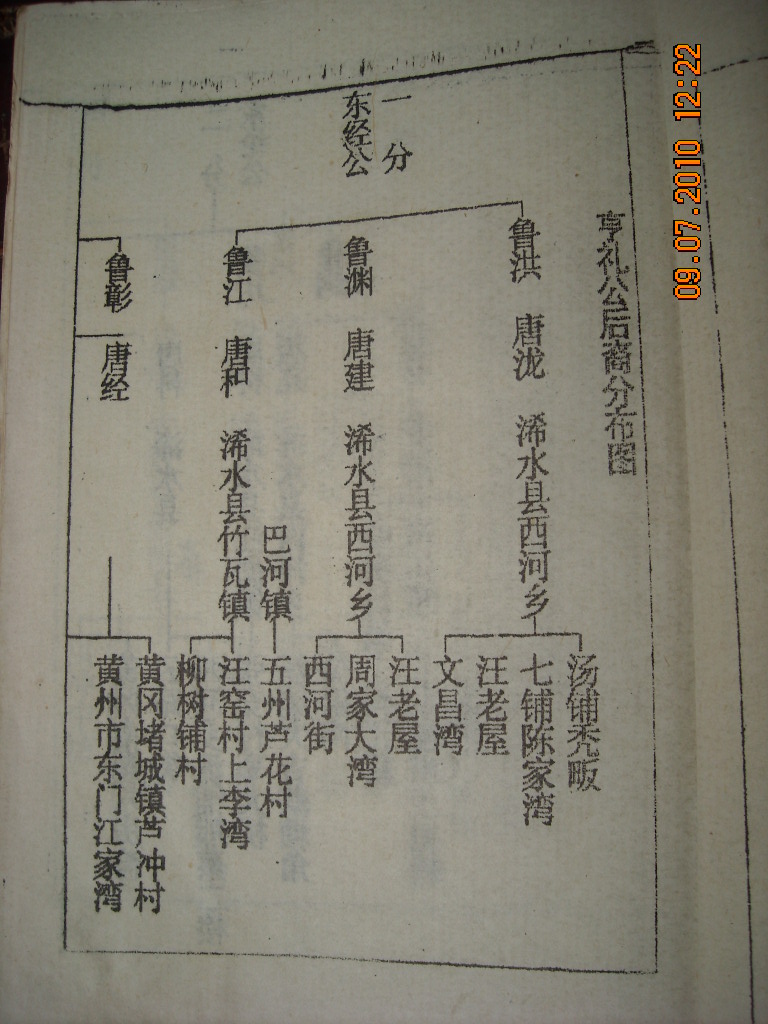 09.07.2010 12:22
亨礼公后裔分布图
一分
东经公
鲁洪 唐泷 浠水县西河乡
鲁渊 唐建 浠水县西河乡
巴河镇
鲁江 唐和 浠水县竹瓦镇
鲁彰 唐经
汤铺秃畈
七铺陈家湾
汪老屋
文昌湾
汪老屋
周家大湾
西河街
五州芦花村
汪窑村上李湾
柳树铺村
黄冈堵城镇芦冲村
黄州市东门江家湾